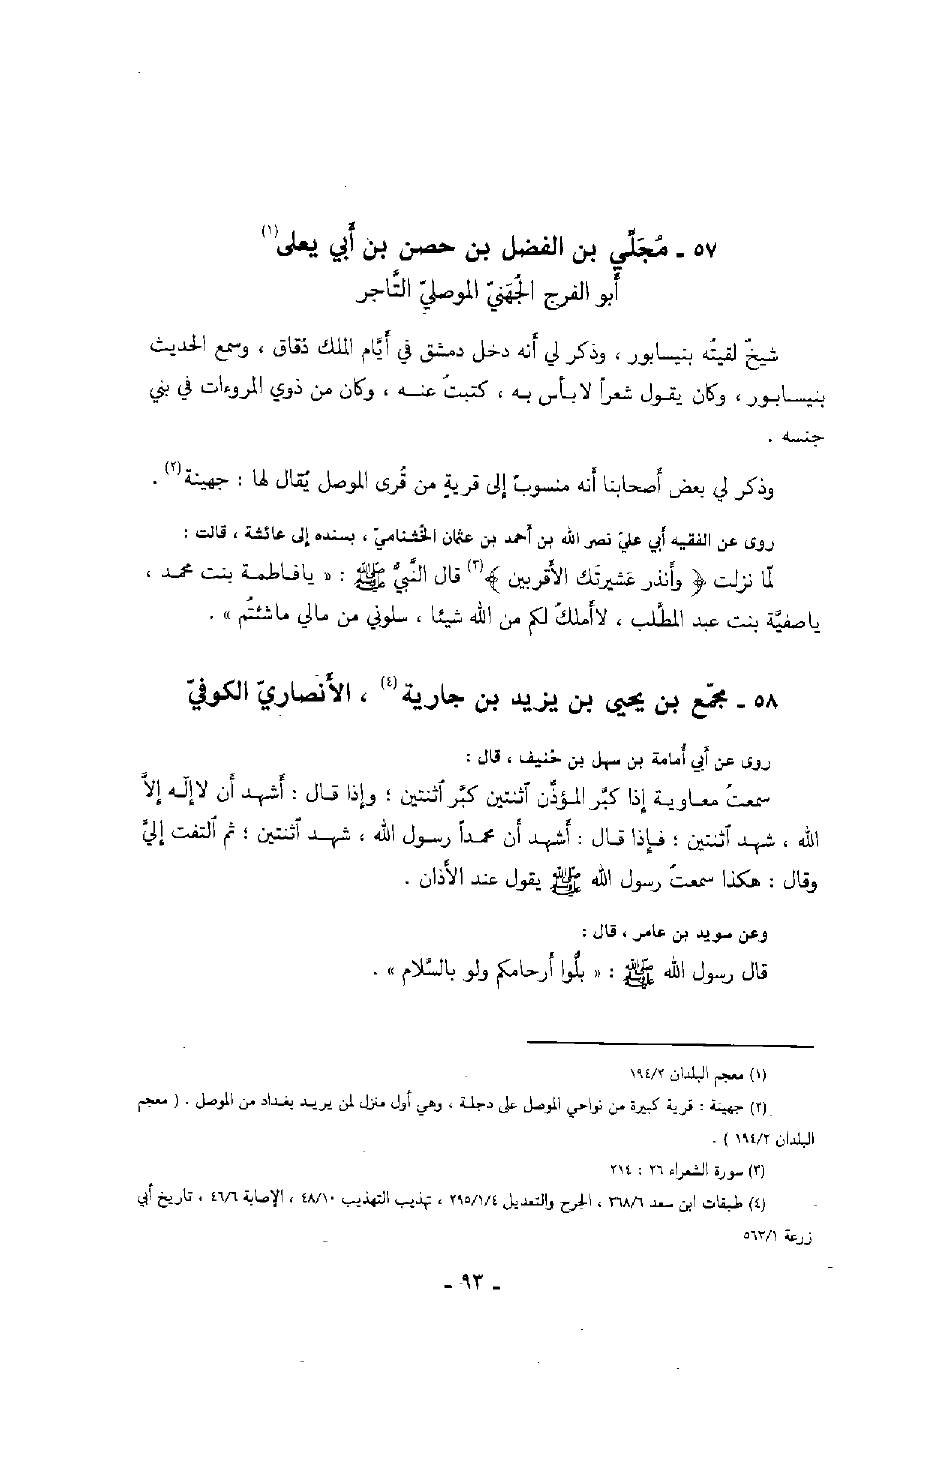 ٥٧ ـ مُجَلّي بن الفضل بن حصن بن أبي يعلى(١)
أبو الفرج الجُهَنيّ الموصليّ التَّاجر
شيخٌ لقيتُه بنيسابور ، وذكر لي أنه دخل دمشق في أيَّام الملك دُقاق ، وسمع الحديث
بنيسابور ، وكان يقول شعراً لا بأس به ، كتبتُ عنه ، وكان من ذوي المروءات في بني
جنسه .
وذكر لي بعض أصحابنا أنه منسوبٌ إلى قريةٍ من قُرى الموصل يُقال لها : جهينة(٢) .
روى عن الفقيه أبي عليّ نصر الله بن أحمد بن عثمان الخُشناميّ ، بسنده إلى عائشة ، قالت :
لمّا نزلت ﴿ وأنذر عشيرتَك الأقربين ﴾(٣) قال النَّبيُّ ﷺ : « يا فاطمة بنت محمد ،
يا صفيَّة بنت عبد المطَّلب ، لا أملكُ لكم من الله شيئا ، سلوني من مالي ما شئتُم » .
٥٨ ـ مجمّع بن يحيى بن يزيد بن جارية(٤) ، الأنصاريّ الكوفيّ
روى عن أبي أمامة بن سهل بن حُنيف ، قال :
سمعتُ معاوية إذا كبَّر المؤذّن ٱثنتين كبَّر ٱثنتين ؛ وإذا قال : أشهد أن لا إله إلاَّ
الله ، شهد ٱثنتين ؛ فإذا قال : أشهد أن محمداً رسول الله ، شهد ٱثنتين ؛ ثم ٱلتفت إليَّ
وقال : هكذا سمعتُ رسول الله ﷺ يقول عند الأذان .
وعن سويد بن عامر ، قال :
قال رسول الله ﷺ : « بلُّوا أرحامكم ولو بالسَّلام » .
(١) معجم البلدان ١٩٤/٢
(٢) جهينة : قرية كبيرة من نواحي الموصل على دجلة ، وهي أول منزل لمن يريد بغداد من الموصل . ( معجم
البلدان ١٩٤/٢ ) .
(٣) سورة الشعراء ٢٦ : ٢١٤
(٤) طبقات ابن سعد ٣٦٨/٦ ، الجرح والتعديل ٢٩٥/١/٤ ، تهذيب التهذيب ٤٨/١٠ ، الإصابة ٤٦/٦ ، تاريخ أبي
زرعة ٥٦٣/١
ـ ٩٣ ـ